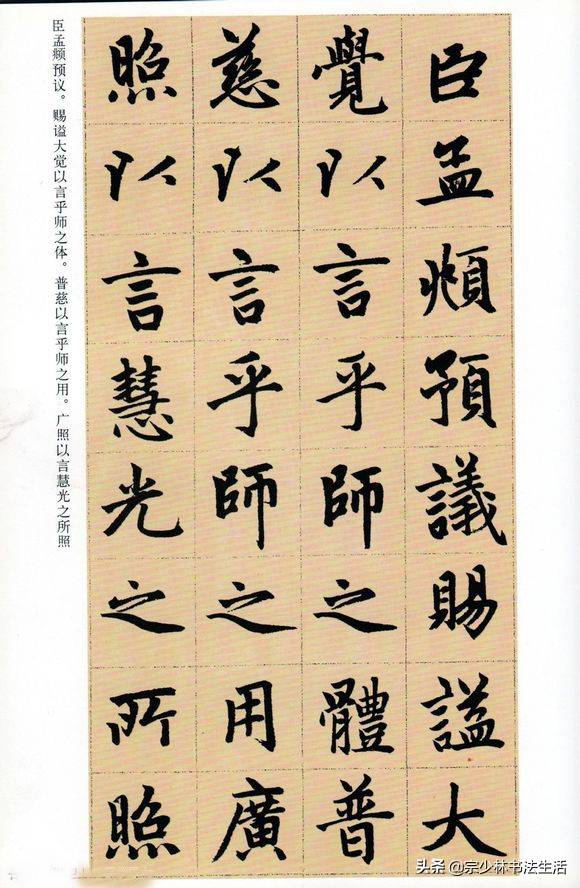 臣孟頫预议。赐谥大觉以言乎师之体。普慈以言乎师之用。广照以言慧光之所照
臣孟頫預議賜謚大
覺以言乎師之體普
慈以言乎師之用廣
照以言慧光之所照
头条 @宗少林书法生活